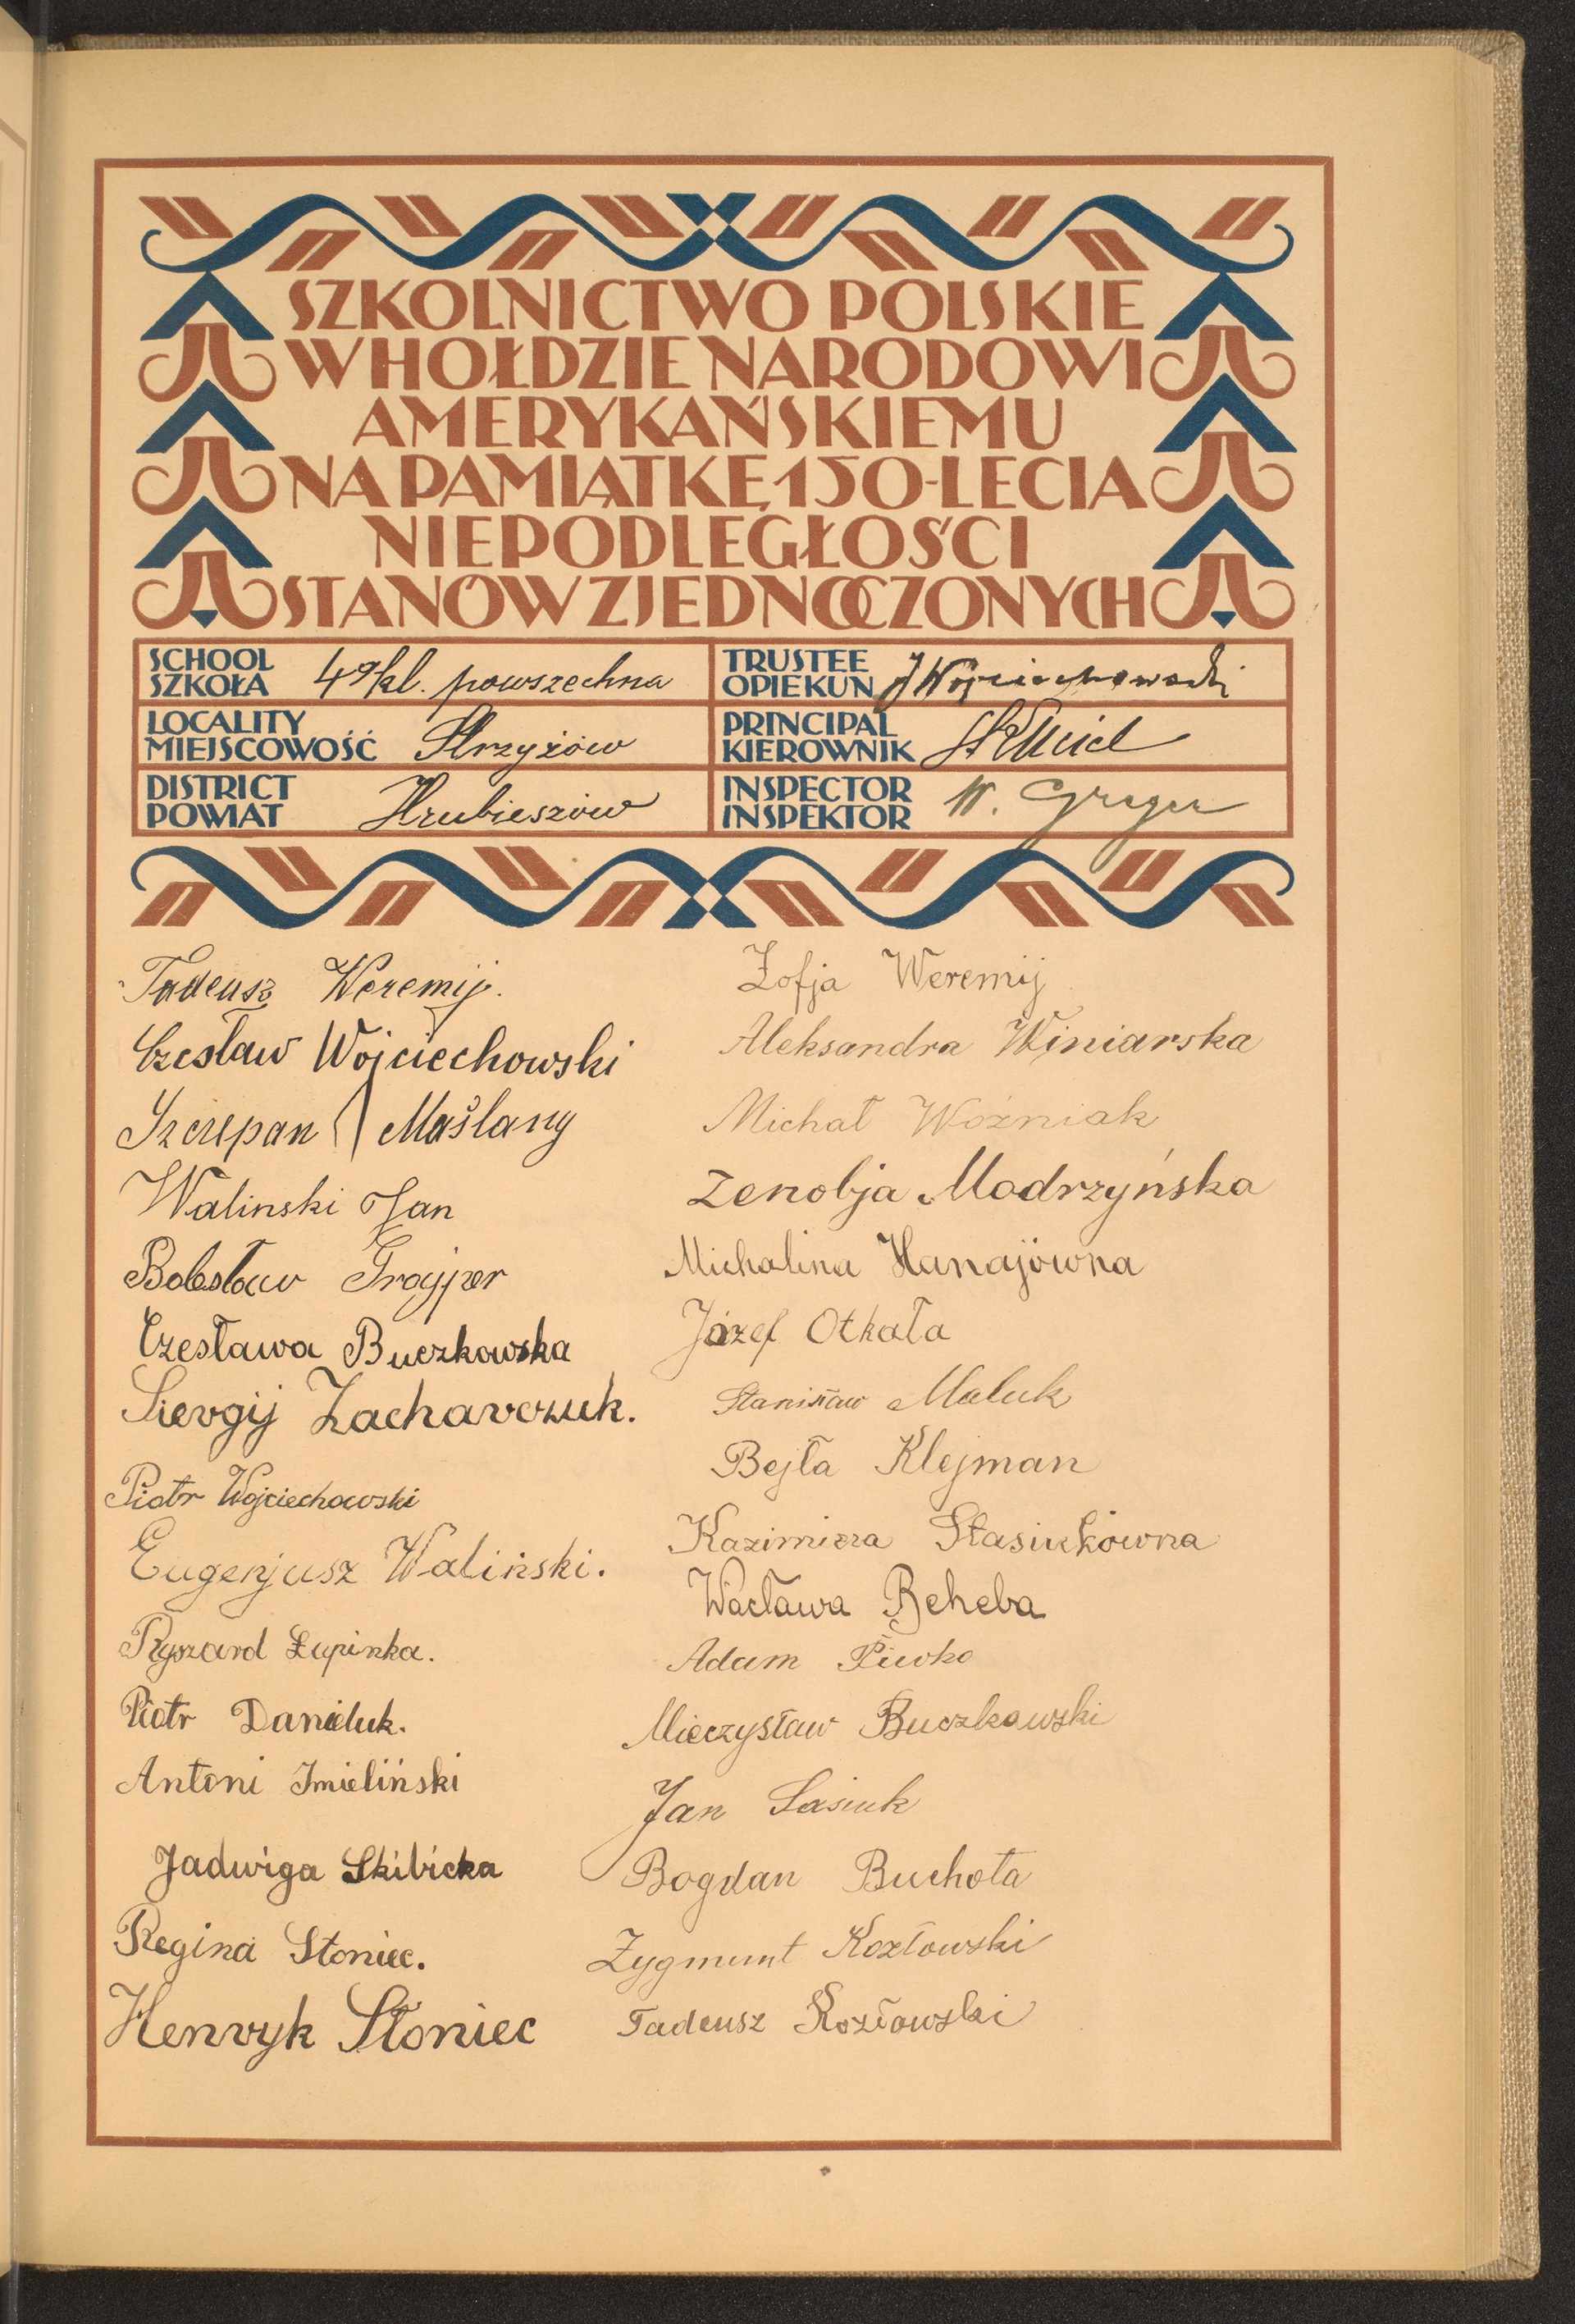 SZKOLNICTWO POLSKIE
W HOŁDZIE NARODOWI
AMERYKAŃSKIEMU
NA PAMIĄTKĘ 150-LECIA
NIEPODLEGŁOŚCI
STANÓW ZJEDNOCZONYCH
SCHOOL
SZKOŁA 4o kl. powszechna
TRUSTEE
OPIEKUN J Wojciechowski
LOCALITY
MIEJSCOWOŚĆ Strzyżów
PRINCIPAL
KIEROWNIK
DISTRICT
POWIAT Hrubieszów
INSPECTOR
INSPEKTOR W. Greger
Tadeusz Weremij.
Czesław Wojciechowski
Szczepan Maślany
Walinski Jan
Bolesław Grajper
Czesława Buczkowska
Siergij Zacharczuk.
Piotr Wojciechowski
Eugenjusz Waliński.
Ryszard Łupinka.
Piotr Daniluk.
Antoni Imieliński
Jadwiga Skibicka
Regina Słoniec.
Henryk Słoniec
Zofja Weremij
Aleksandra Winiarska
Michał Woźniak
Zenobja Modrzyńska
Michalina Hanajówna
Józef Otkała
Stanisław Maluk
Bejła Klejman
Kazimiera Stasiukówna
Wacława Beheba
Adam Piwko
Mieczysław Buczkowski
Jan Sasiuk
Bogdan Buchota
Zygmunt Kozłowski
Tadeusz Kozłowski